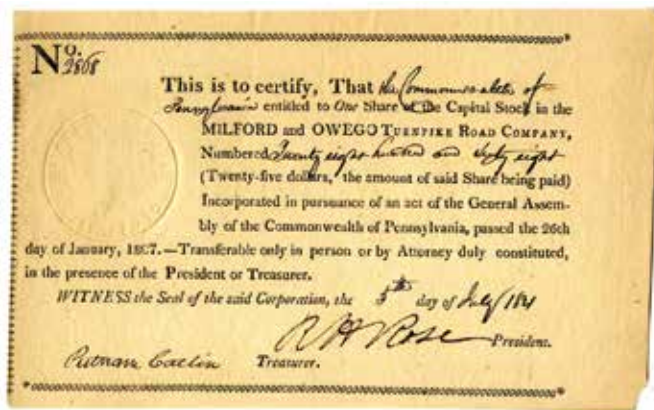 No. 2868
This is to certify, That the Commonwealth of
Pennsylvania entitled to One Share of the Capital Stock in the
MILFORD and OWEGO TURNPIKE ROAD COMPANY,
Numbered Twenty eight hundred and sixty eight
(Twenty-five dollars, the amount of said Share being paid)
Incorporated in pursuance of an act of the General Assem-
bly of the Commonwealth of Pennsylvania, passed the 26th
day of January, 1807.—Transferable only in person or by Attorney duly constituted,
in the presence of the President or Treasurer.
WITNESS the Seal of the said Corporation, the 5th day of July
R H Rose President.
Putnam Catlin Treasurer.